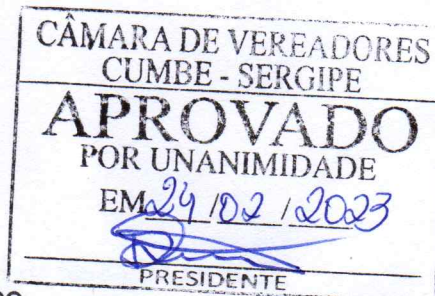 CÂMARA DE VEREADORES
CUMBE - SERGIPE
APROVADO
POR UNANIMIDADE
EM 24 / 02 / 2023
PRESIDENTE